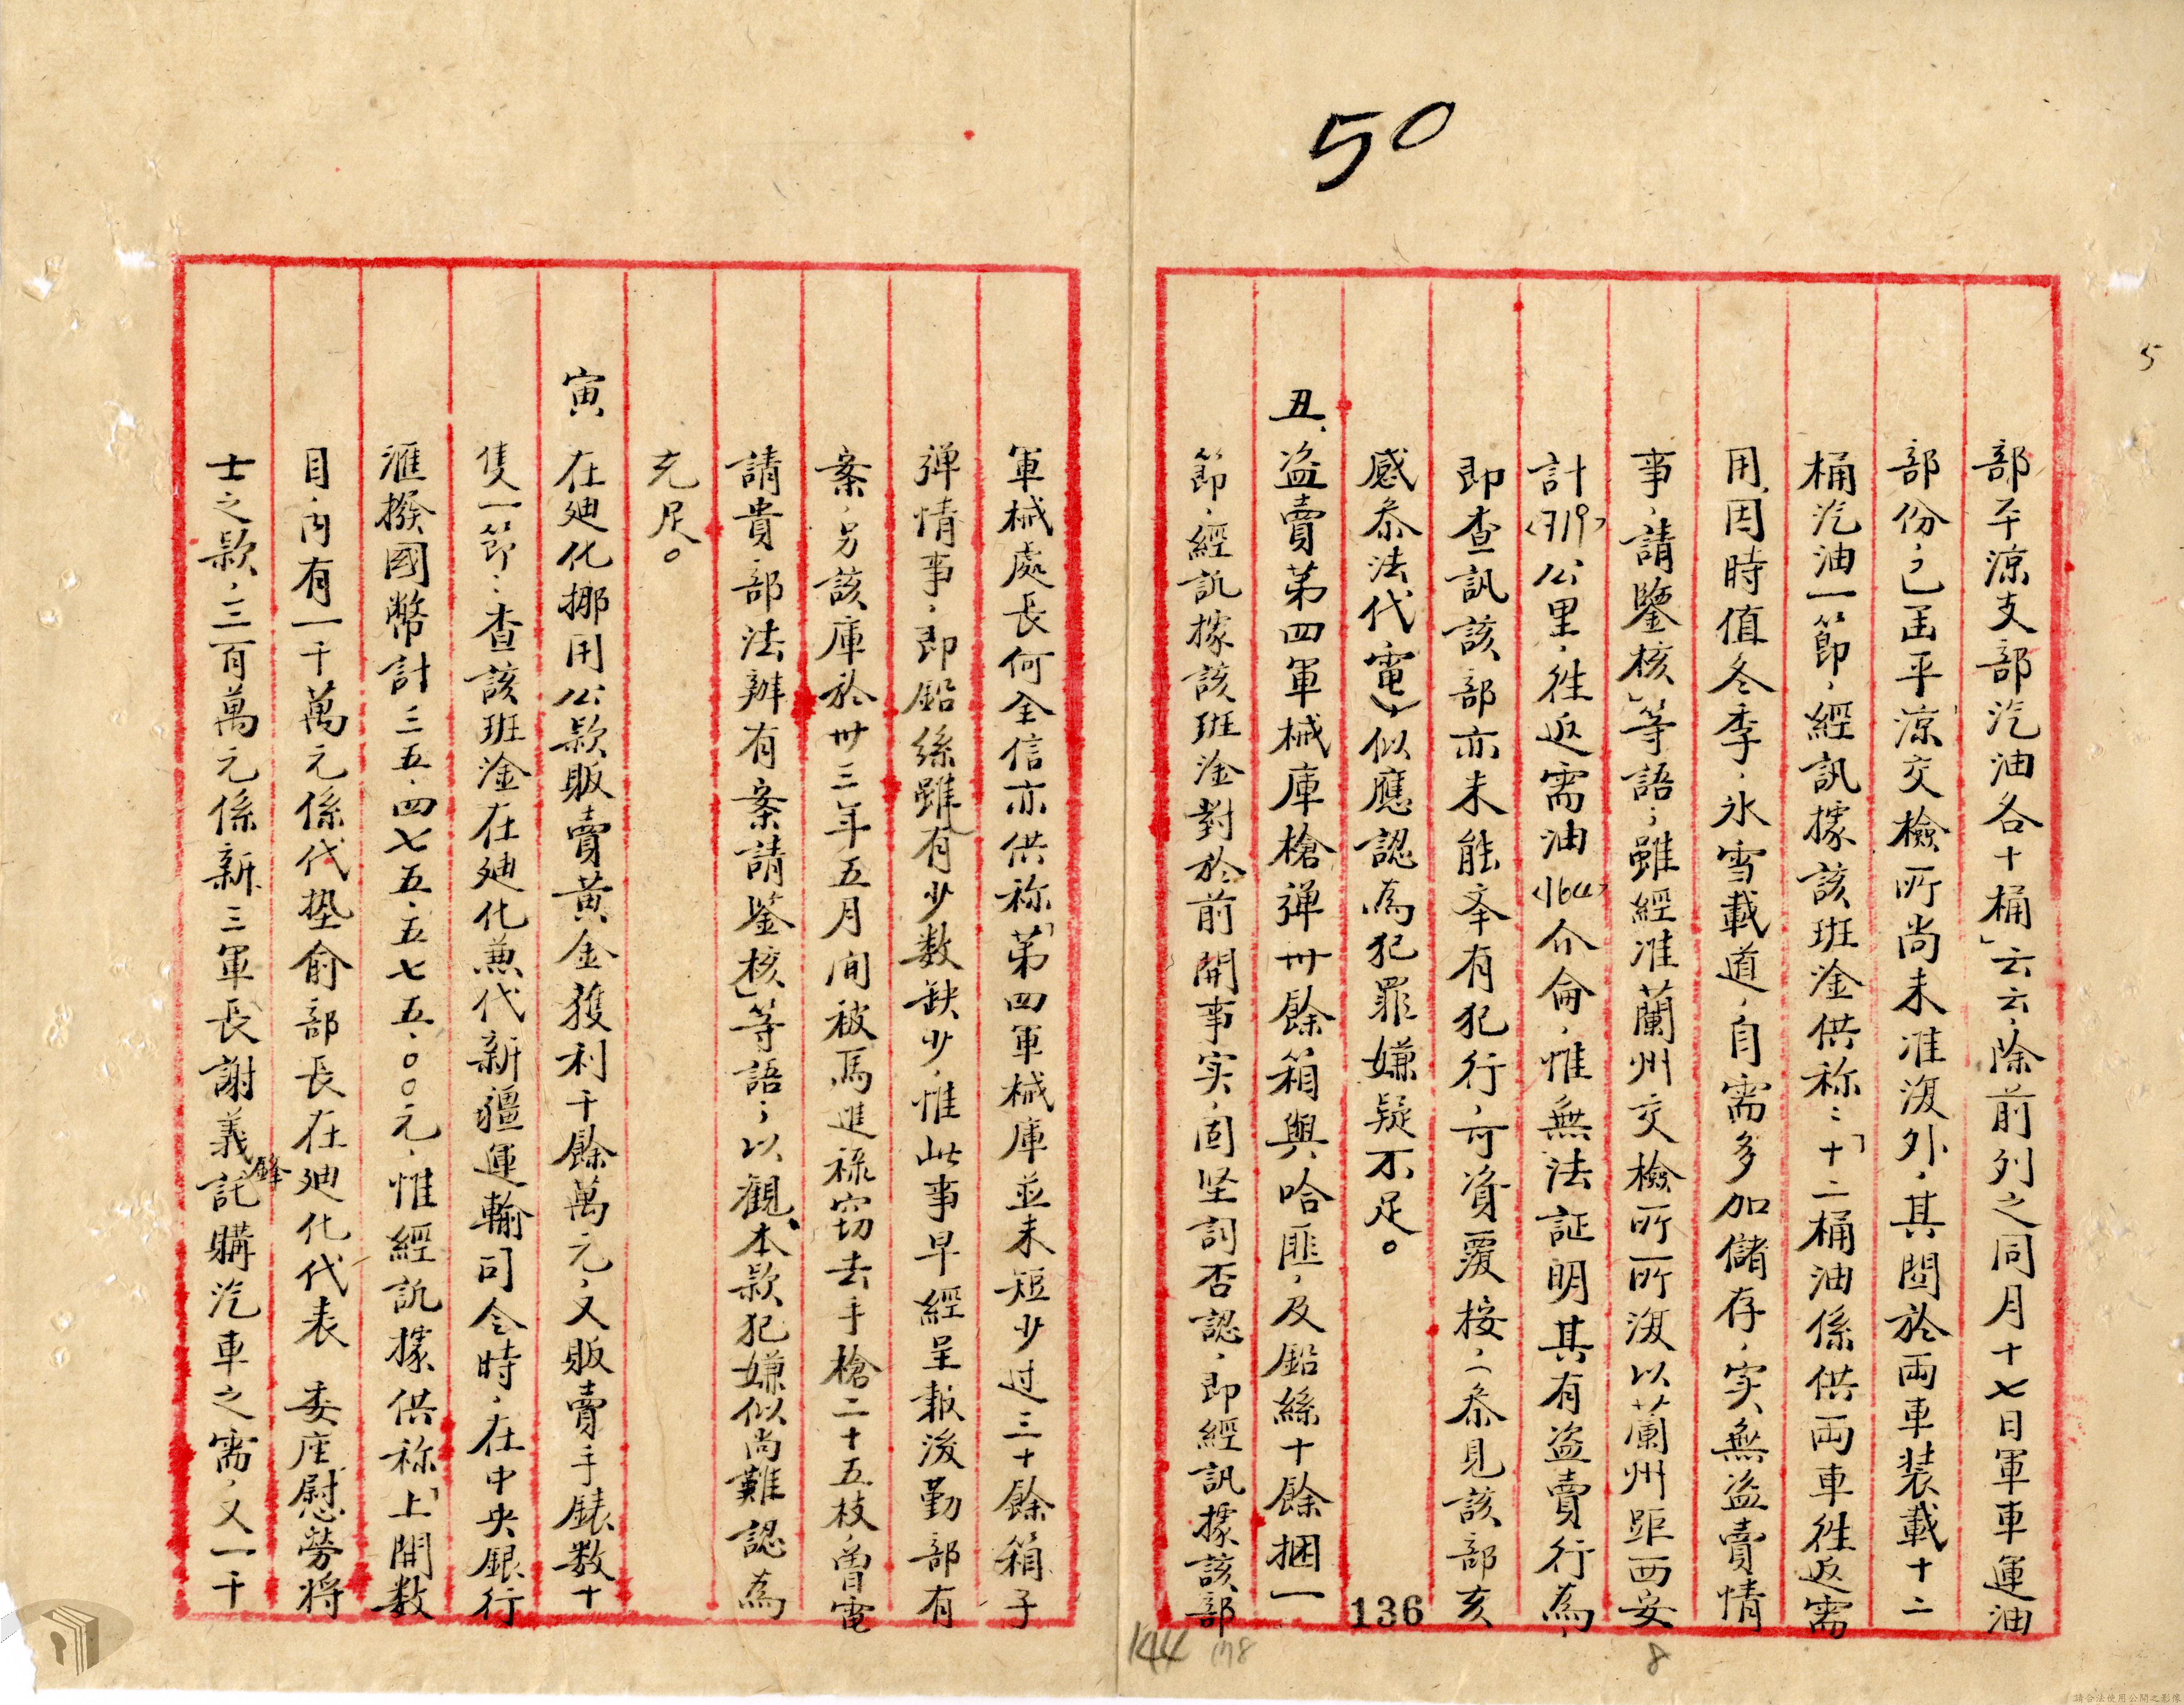 50
5
部平涼支部汽油各十桶」云云，除前列之同月十七日軍車運油
部份，已函平涼交檢所尚未准復外，其關於両車裝載十二
桶汽油一節，經訊據該班淦供称：「十二桶油係供両車往返需
用，因時值冬季，氷雪載道，自需多加儲存，实無盜賣情
事，請鑒核」等語；雖經准蘭州交檢所所復以蘭州距西安
計(719)公里，往返需油(164)介侖，惟無法証明其有盜賣行為，
即查訊該部亦未能举有犯行，可資覆按，(叅見該部亥
感叅法代電)，似應認為犯罪嫌疑不足。
丑、盜賣第四軍械庫槍彈卅餘箱與哈匪，及鉛絲十餘捆一
節，經訊據該班淦對於前開事实，固坚詞否認，即經訊據該部
軍械處長何全信亦供称「第四軍械庫並未短少过三十餘箱子
彈情事，即鉛絲雖有少数缺少，惟此事早經呈報後勤部有
案，另該庫於卅三年五月间被馬進祿窃去手槍二十五枝，曾電
請貴部法辦有案請鑒核」等語；以觀，本款犯嫌似尚難認為
充足。
寅 在廸化挪用公款販賣黃金獲利千餘萬元，又販賣手錶数十
隻一節：查該班淦在廸化兼代新疆運輸司令時，在中央銀行
滙撥國幣計三五．四七五．五七五．〇〇元，惟經訊據供称「上開数
目，內有一千萬元係代墊俞部長在廸化代表　委座慰勞將
士之款，三百萬元係新三軍長謝義鋒託購汽車之需，又一千
136
144
178
8
請合法使用公開之影像